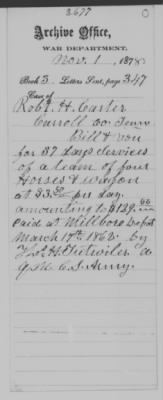 2677
Archive Office,
WAR DEPARTMENT,
Nov. 1, 1878
Book 3, Letters Sent, page 347
Case of
Robt. H. Carter
Carroll Co Tenn
Bill & vou
for 37 days services
of a team of four
Horses & wagon
at $3.50 per day
amounting to $129.50
Paid at Millboro Depot
March 17th 1862 by
A
Q.M. C.S. Army.